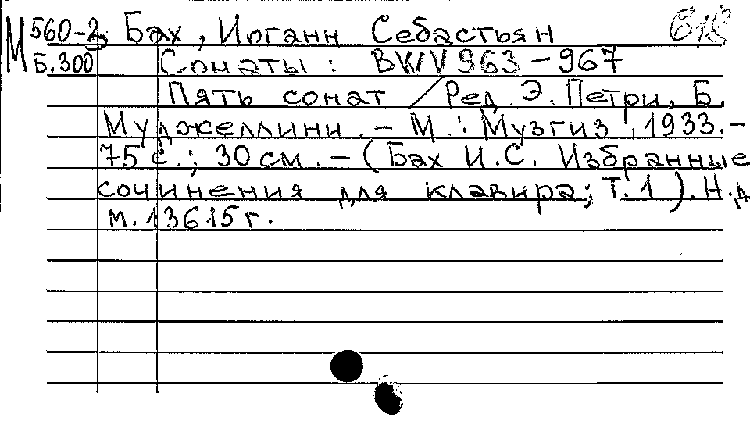 М 560-2 Бах, Иоганн Себастьян
Б.300 Сонаты: BWV 963-967
Пять сонат / Ред. Э. Петри, Б.
Муджеллини. - М.: Музгиз, 1933. -
75 с.; 30 см. - (Бах И.С. Избранные
сочинения для клавира; Т. 1). Н.д
м. 13615 г.